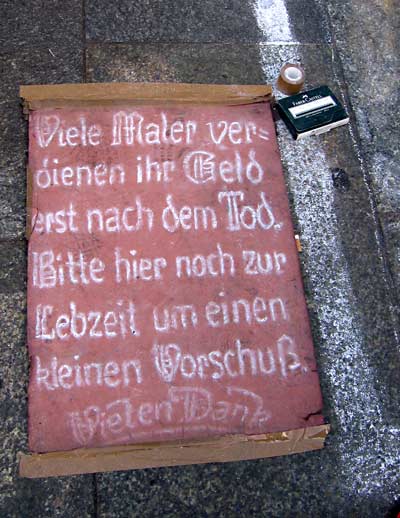 FABER-CASTELL
Viele Maler ver=
dienen ihr Geld
erst nach dem Tod.
Bitte hier noch zur
Lebzeit um einen
kleinen Vorschuß.
Vielen Dank